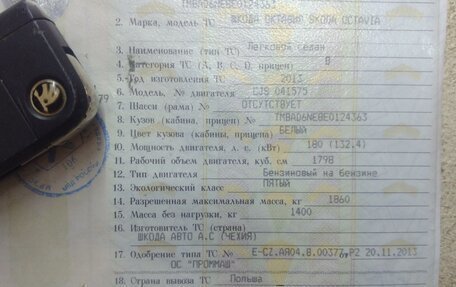 TMBAD6NE8E0124363
2. Марка, модель ТС ШКОДА ОКТАВИЯ SKODA OCTAVIA
3. Наименование (тип ТС) Легковой седан
4. Категория ТС (А, В, С, D, прицеп) В
5. Год изготовления ТС 2013
6. Модель, № двигателя CJS 041575
7. Шасси (рама) № ОТСУТСТВУЕТ
8. Кузов (кабина, прицеп) № TMBAD6NE8E0124363
9. Цвет кузова (кабины, прицепа) БЕЛЫЙ
10. Мощность двигателя, л. с. (кВт) 180 (132.4)
11. Рабочий объем двигателя, куб. см 1798
12. Тип двигателя Бензиновый на бензине
13. Экологический класс ПЯТЫЙ
14. Разрешенная максимальная масса, кг 1860
15. Масса без нагрузки, кг 1400
16. Изготовитель ТС (страна)
ШКОДА АВТО А.С (ЧЕХИЯ)
17. Одобрение типа ТС № E-CZ.АЯ04.В.00377 от Р2 20.11.2013
ОС "ПРОММАШ"
18. Страна вывоза ТС Польша
79